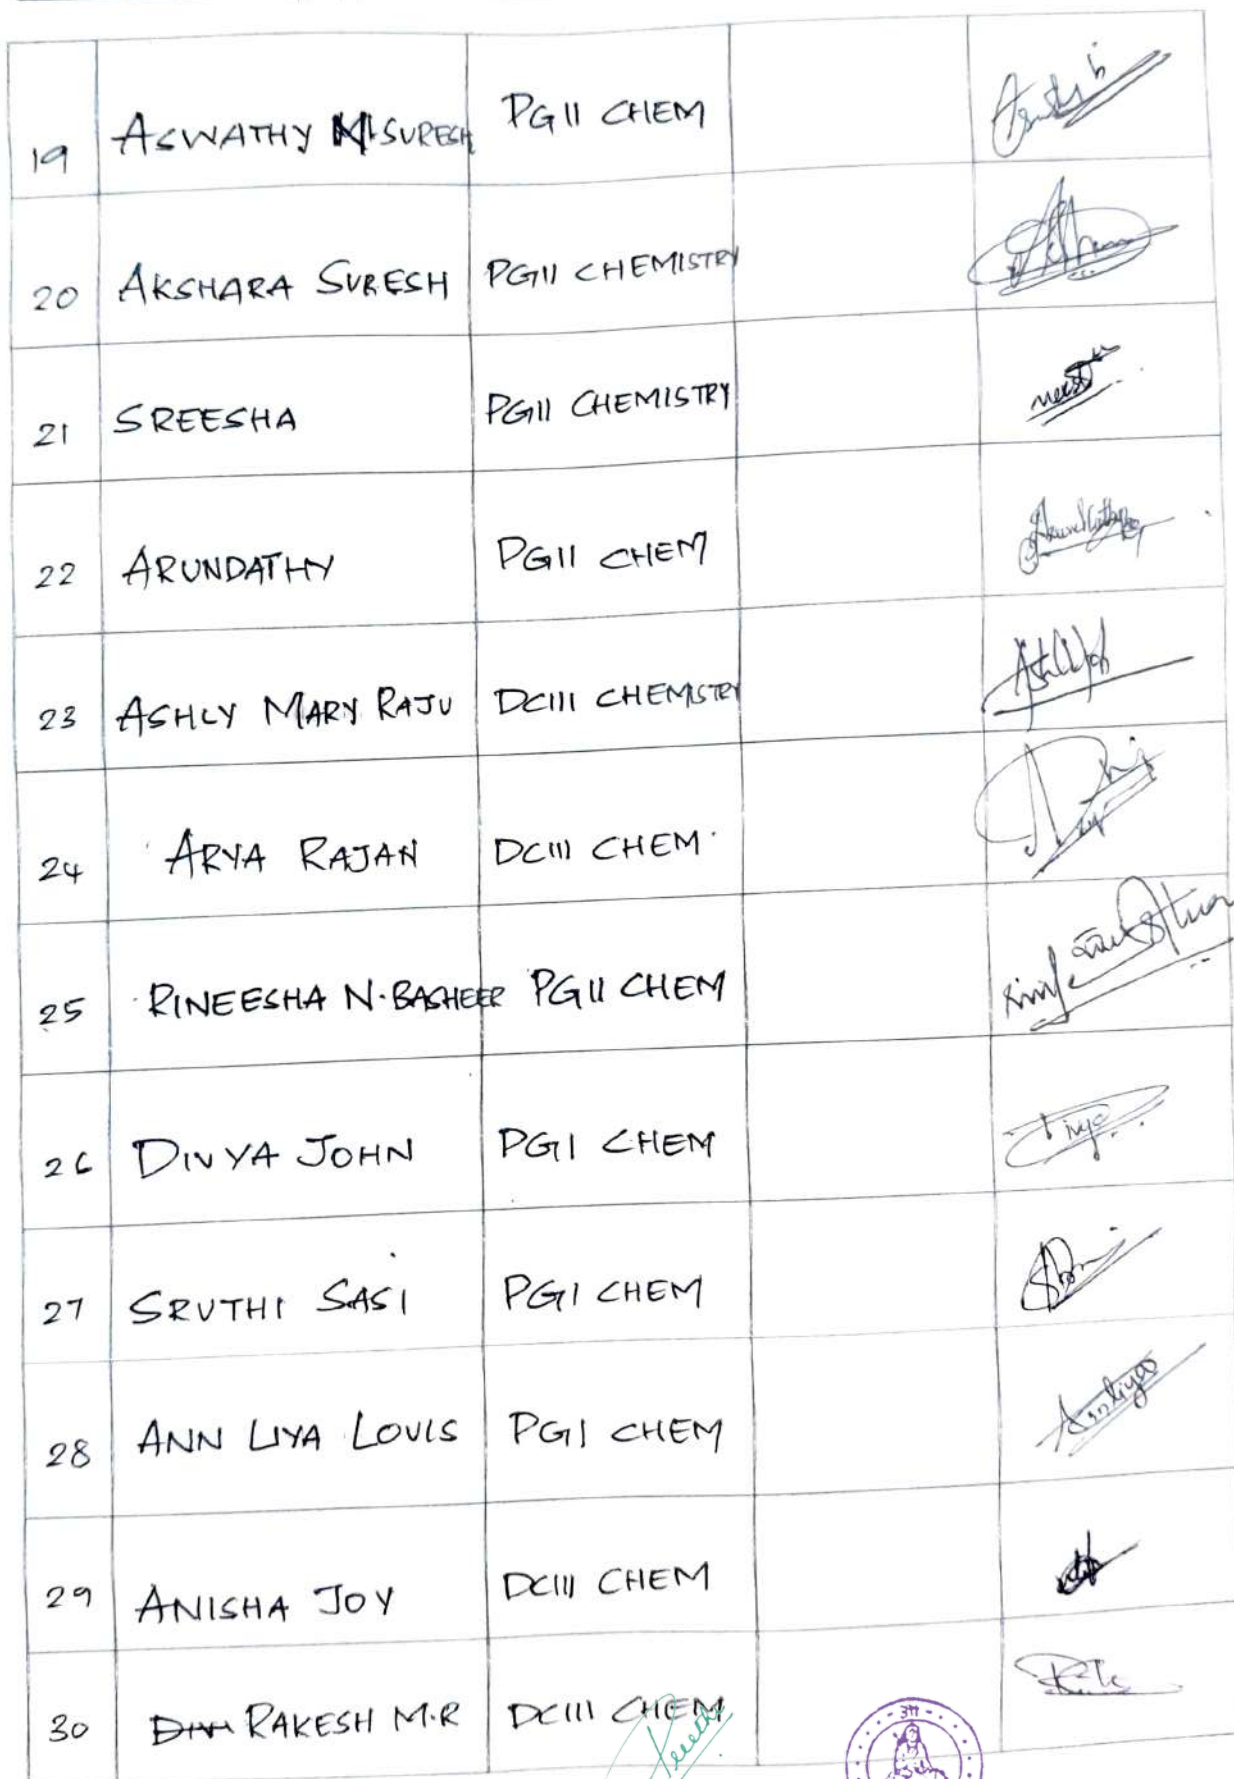 19 ASWATHY M SURESH PG II CHEM
20 AKSHARA SURESH PGII CHEMISTRY
21 SREESHA PGII CHEMISTRY
22 ARUNDATHY PGII CHEM Arundathy
23 ASHLY MARY RAJU DCIII CHEMISTRY
24 ARYA RAJAN DCIII CHEM
25 RINEESHA N. BASHEER PG II CHEM
26 DIVYA JOHN PGI CHEM Divya
27 SRUTHI SASI PGI CHEM
28 ANN LIYA LOUIS PGI CHEM Annliya
29 ANISHA JOY DCIII CHEM
30 RAKESH M.R DCIII CHEM